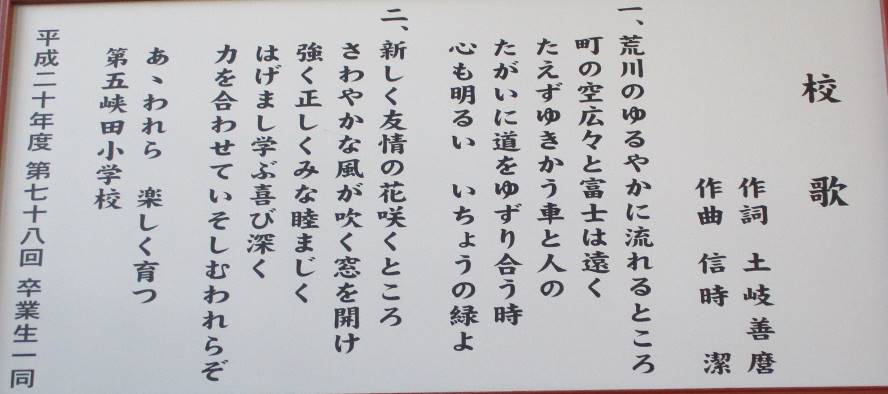 校歌
作詞 土岐善麿
作曲 信時 潔
一、荒川のゆるやかに流れるところ
町の空広々と富士は遠く
たえずゆきかう車と人の
たがいに道をゆずり合う時
心も明るい いちょうの緑よ
二、新しく友情の花咲くところ
さわやかな風が吹く窓を開け
強く正しくみな睦まじく
はげまし学ぶ喜び深く
力を合わせていそしむわれらぞ
あゝわれら 楽しく育つ
第五峡田小学校
平成二十年度 第七十八回 卒業生一同